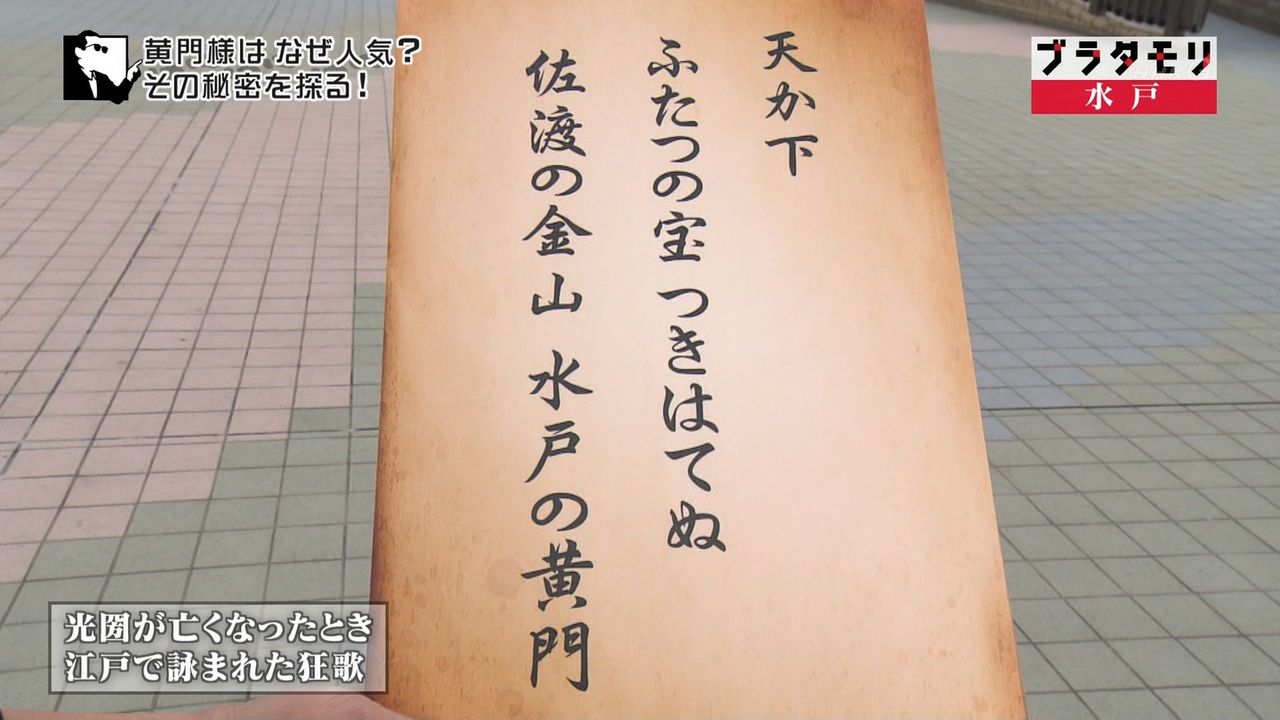 黄門様は なぜ人気?
その秘密を探る!
ブラタモリ
水戸
天か下
ふたつの宝 つきはてぬ
佐渡の金山 水戸の黄門
光圀が亡くなったとき
江戸で詠まれた狂歌